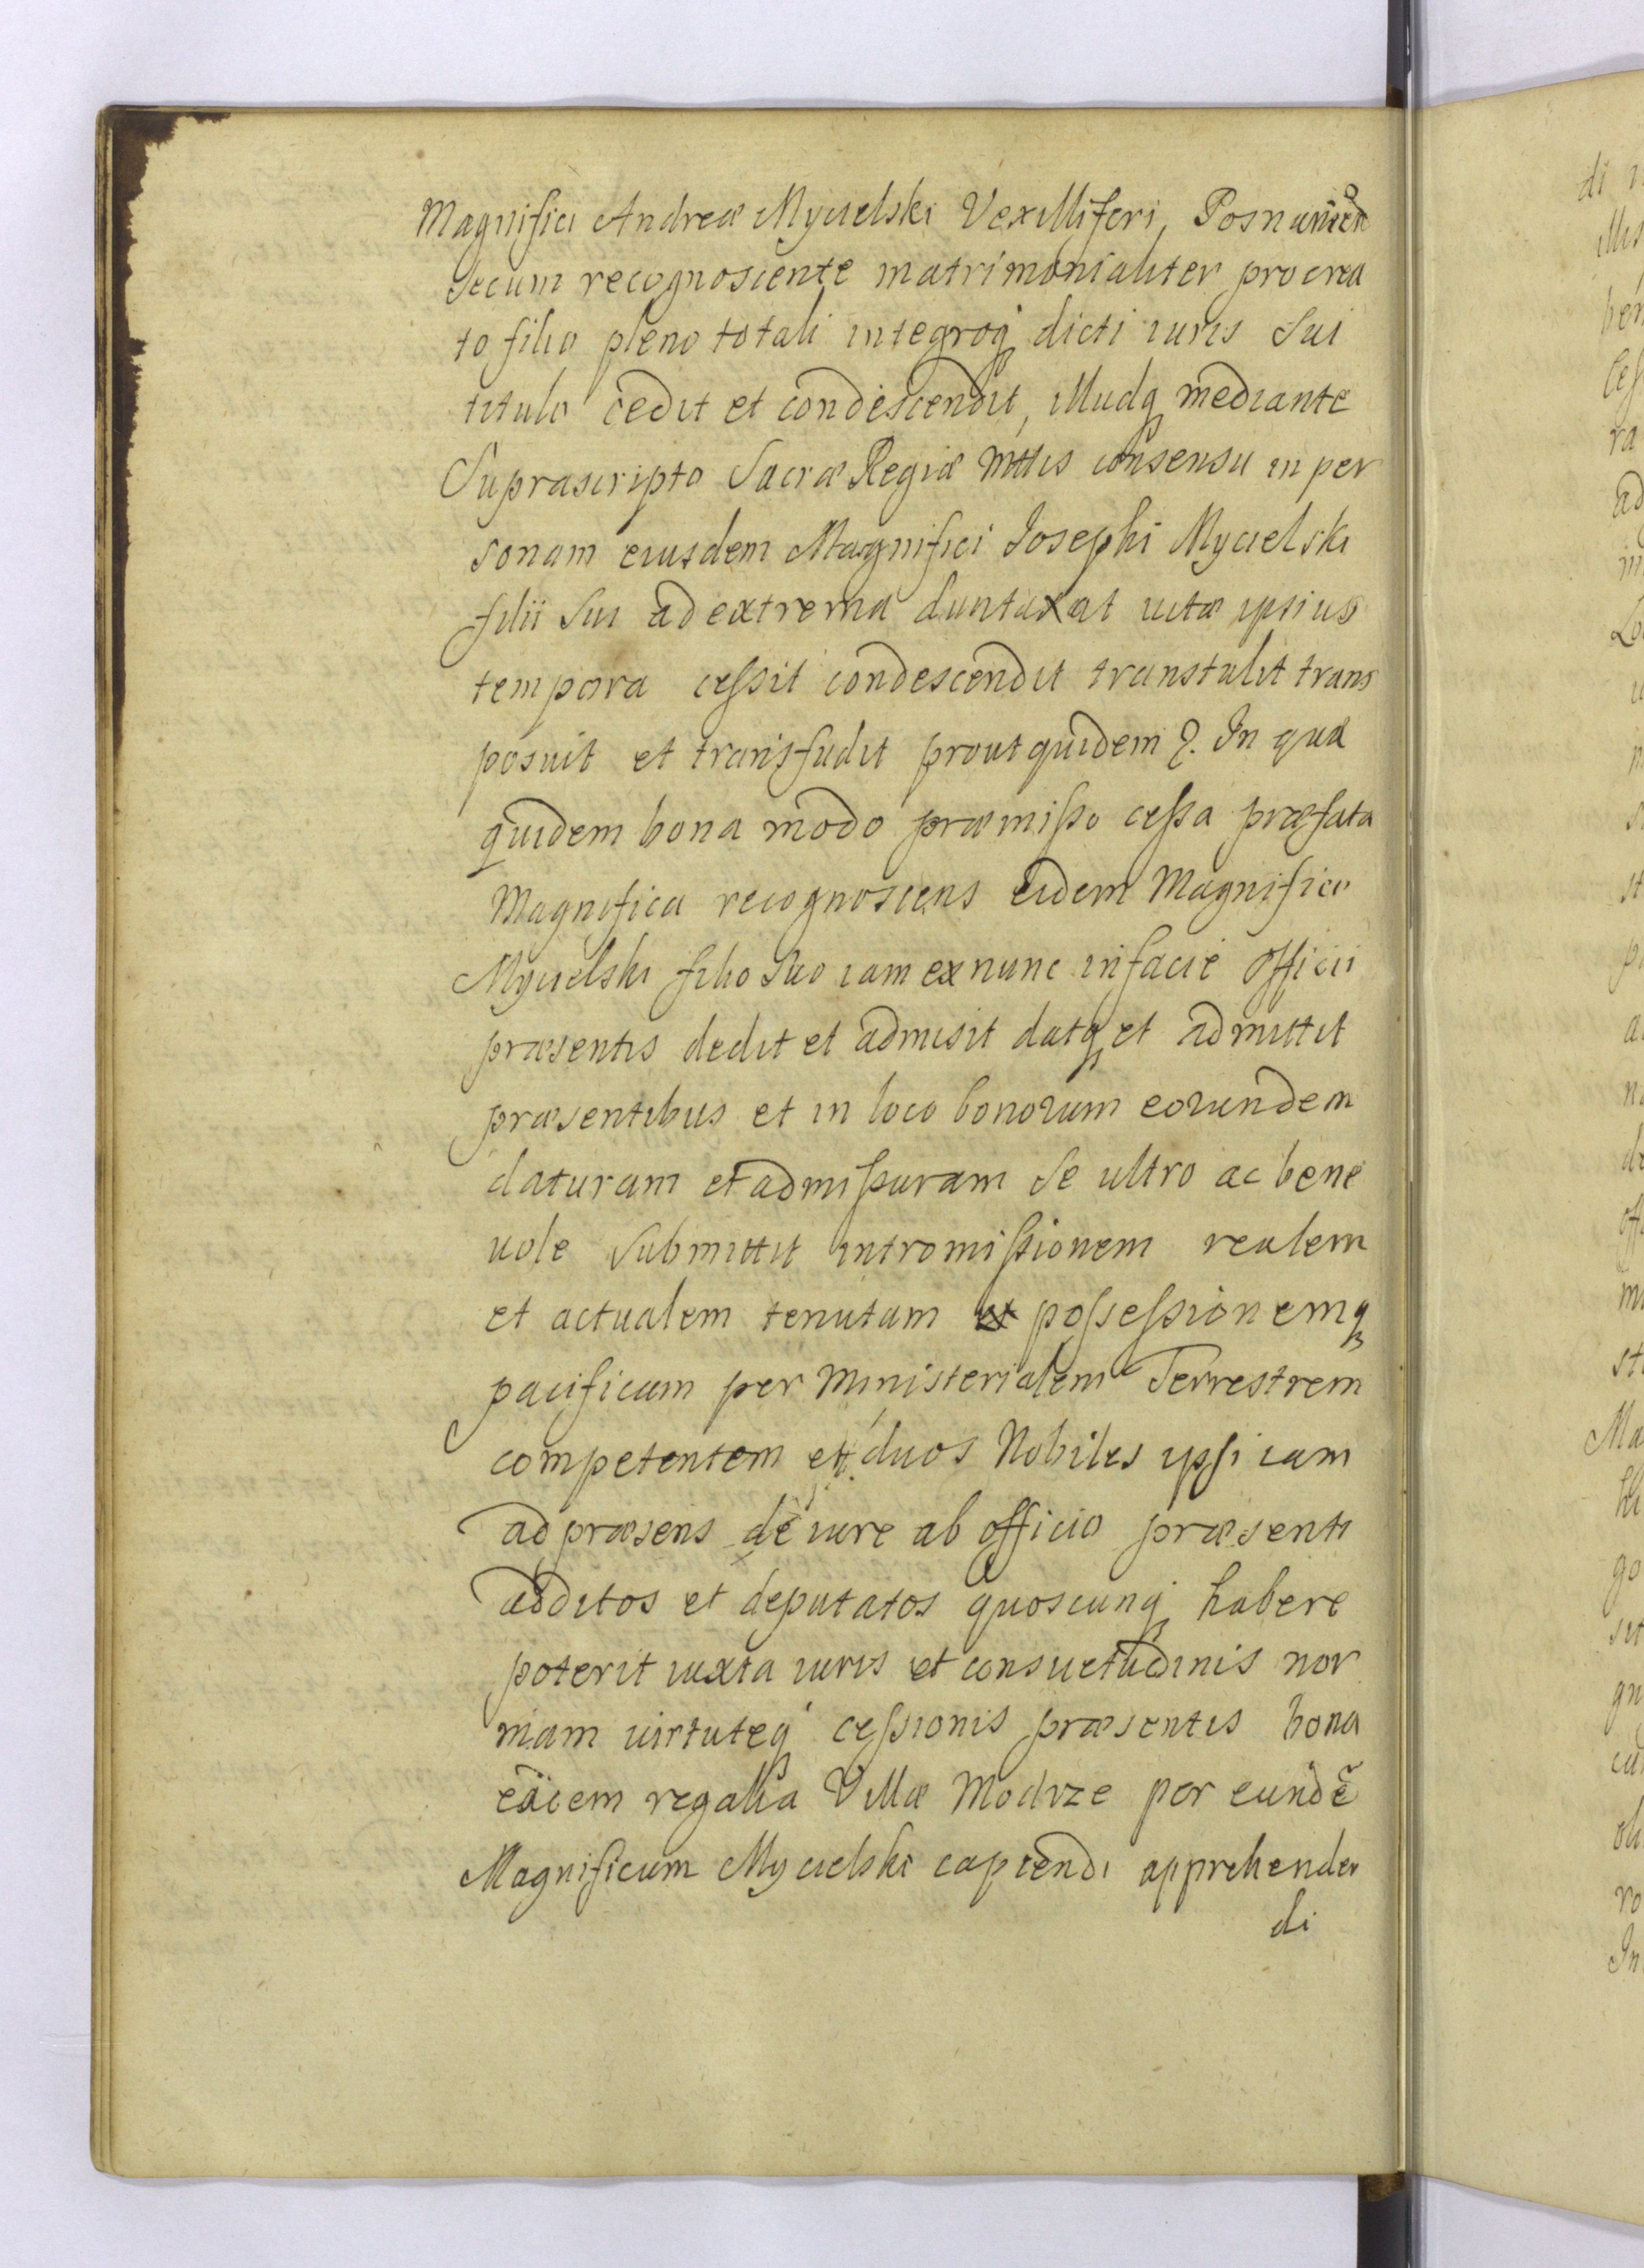 Magnifici Andreæ Mycielski Vexilliferi, Posnanien
secum recognoscente matrimonialiter procrea
to filio pleno totali integroq dicti iuris Sui
titulo cedit et condescendit, illudq mediante
Suprascripto Sacræ Regiæ Mttis consensu in per
sonam eiusdem Magnifici Josephi Mycielski
filii Sui ad extrema duntaxat uitæ ipsius
tempora cessit condescendit transtulit trans
posuit et transfudit prout quidem In qua
quidem bona modo præmisso cessa præfata
Magnifica recognoscens eidem Magnifico
Mycielski filio Suo iam ex nunc in facie officii
præsentis dedit et admisit datq et admittit
præsentibus et in loco bonorum eorundem
daturam et admissuram Se ultro ac bene
uole Submittit intromissionem realem
et actualem tenutam possessionemq
pacificam per Ministerialem Terrestrem
competentem et duos Nobiles ipsi iam
ad præsens de iure ab officio præsenti
additos et deputatos quoscunq habere
poterit iuxta iuris et consuetudinis nor
mam uirtuteq cessionis præsentis bona
eadem regalia Villæ Modrze per eundē
Magnificum Mycielski capiendi apprehenden
di